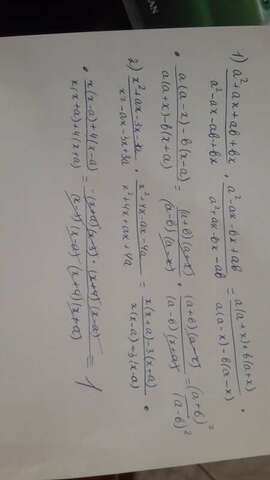 1) a²+ax+ab+bx / a²-ax-ab+bx · a²-ax-bx+ab / a²+ax-bx-ab = a(a+x)+b(a+x) / a(a-x)-b(a-x) ·
· a(a-x)-b(x-a) / a(a+x)-b(x+a) = (a+b)(a+x) / (a-b)(a-x) · (a+b)(a-x) / (a-b)(x+a) = (a+b)² / (a-b)²
2) x²+ax-3x-3a / x²-ax-3x+3a · x²+4x-ax-4a / x²+4x+ax+4a = x(x+a)-3(x+a) / x(x-a)-3(x-a) ·
· x(x-a)+4(x-a) / x(x+a)+4(x+a) = (x+a)(x-3)·(x+4)(x-a) / (x-3)(x-a)·(x+4)(x+a) = 1